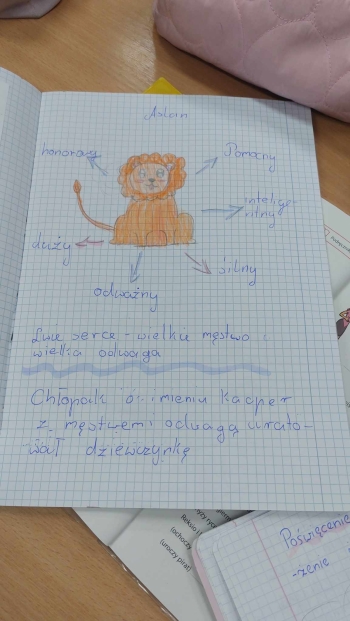 Aslan
honorowy
Pomocny
intelige-
ntny
duży
silny
odważny
Lwie serce - wielkie męstwo i
wielka odwaga
Chłopak o imieniu Kacper
z męstwem i odwagą urato-
wał dziewczynkę
Poświęcenie
-zenie
(ochoczy
(uroczy pirat)